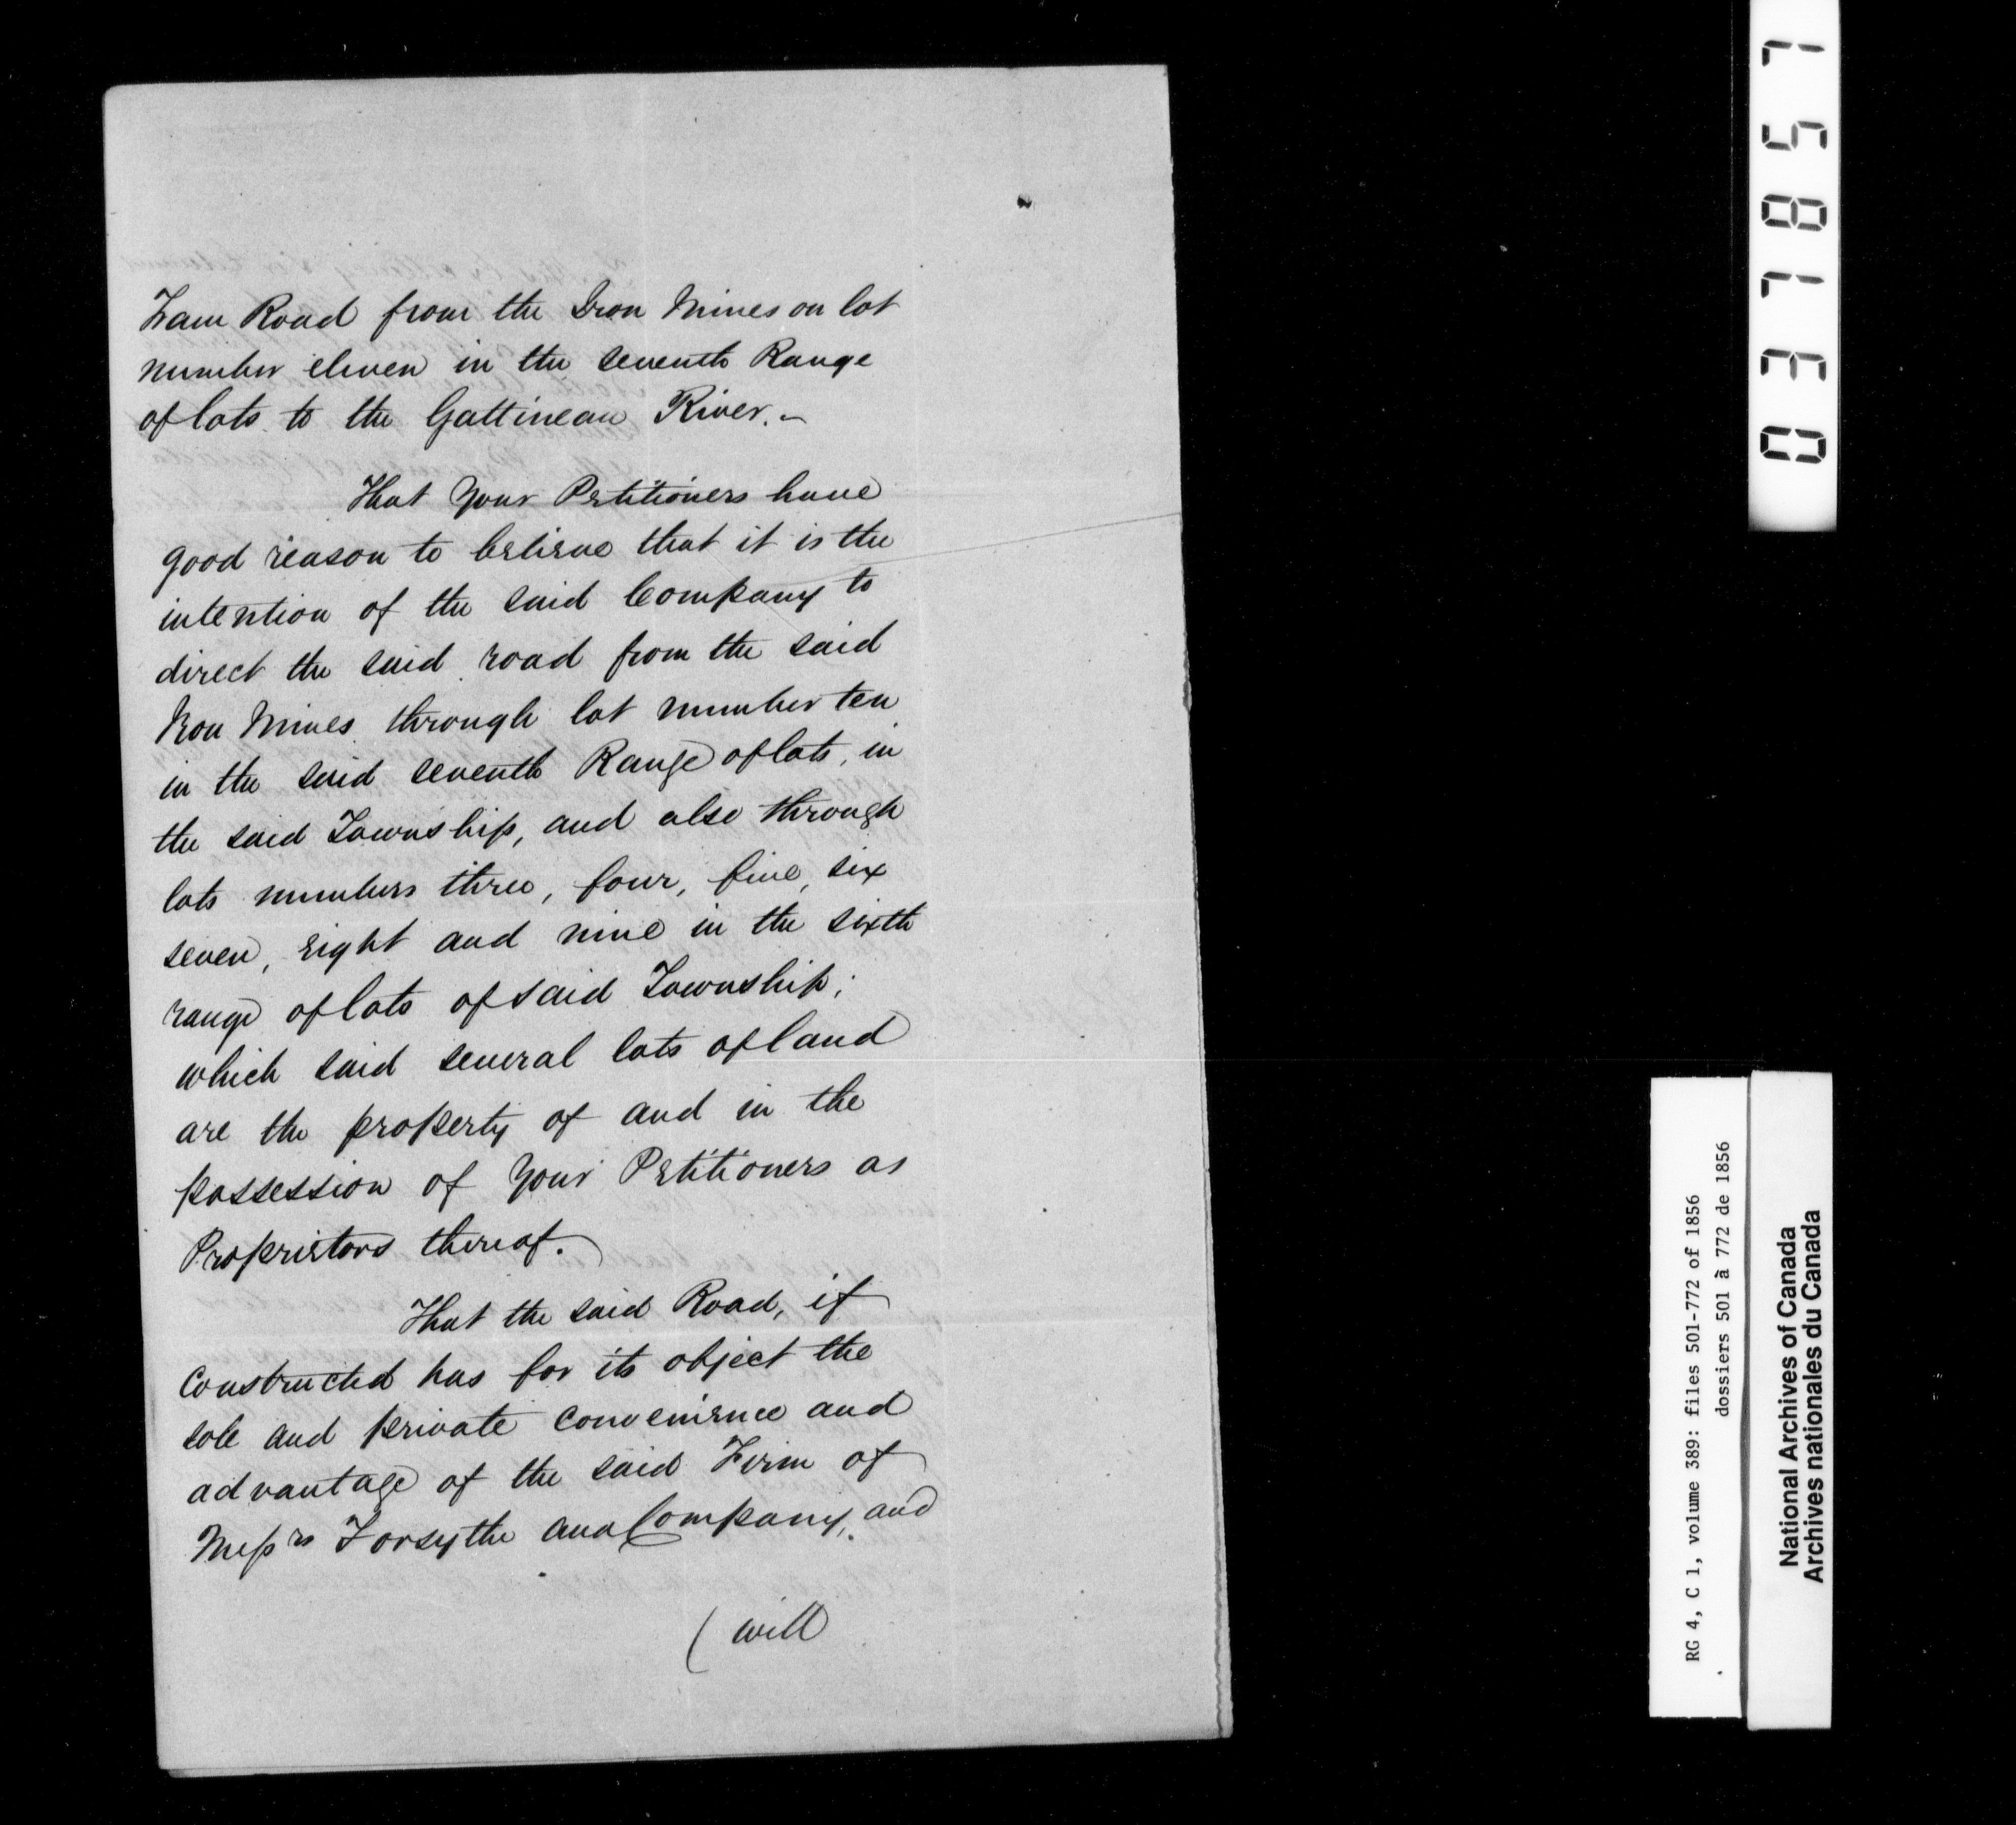 Tram Road from the Iron Mines on lot
number eleven in the seventh Range
of lots to the Gattineau River. -
That Your Petitioners have
good reason to believe that it is the
intention of the said Company to
direct the said road from the said
Iron Mines through lot number ten
in the said seventh Range of lots, in
the said Township, and also through
lots numbers three, four, five, six
seven, eight and nine in the sixth
range of lots of said Township;
which said several lots of land
are the property of and in the
possession of Your Petitioners as
Proprietors thereof.
That the said Road, if
constructed has for its object the
sole and private convenience and
advantage of the said Firm of
Messrs Forsythe and Company, and
( will
037857
RG 4, C 1, volume 389: files 501-772 of 1856
dossiers 501 à 772 de 1856
National Archives of Canada
Archives nationales du Canada